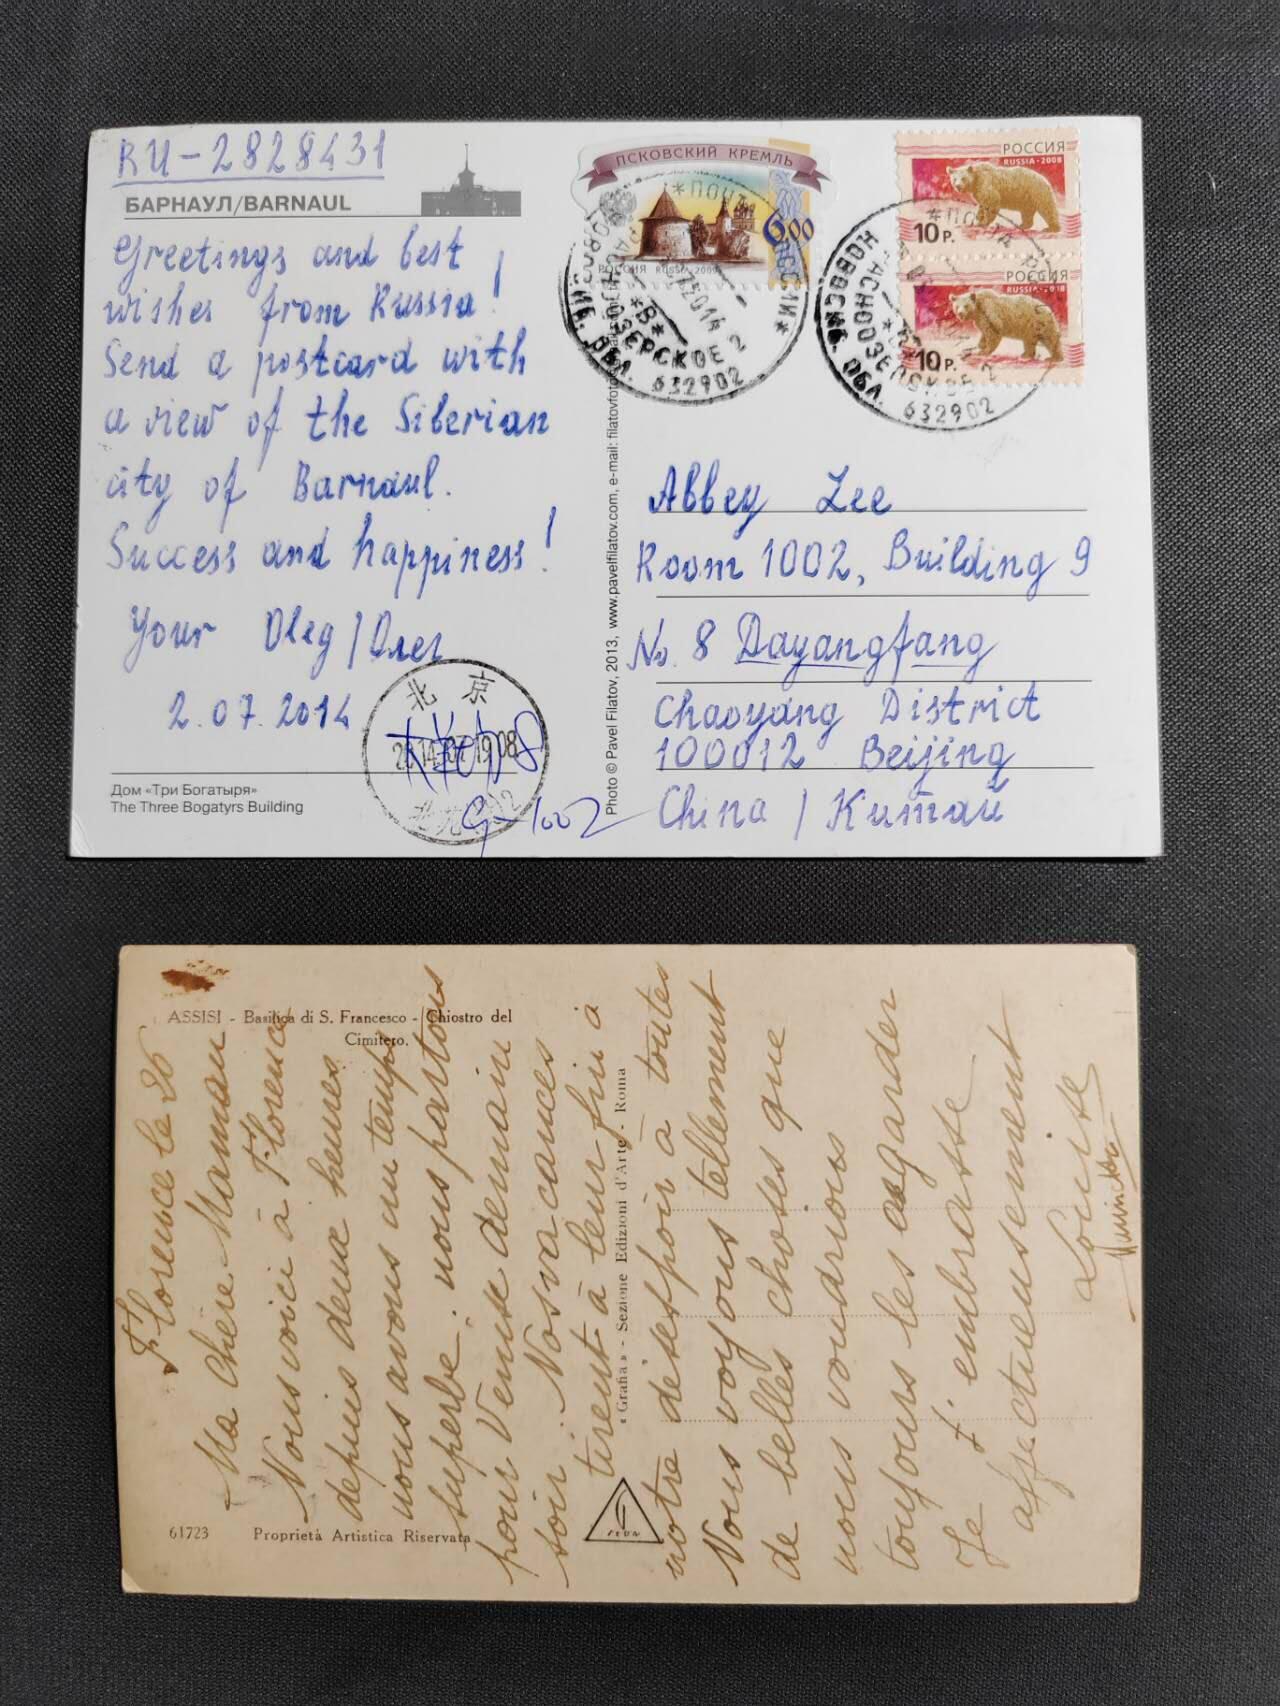 RU-2828431
БАРНАУЛ/BARNAUL
Greetings and best
wishes from Russia!
Send a postcard with
a view of the Siberian
city of Barnaul.
Success and happiness!
Your Oleg/Олег
2.07.2014
Дом «Три Богатыря»
The Three Bogatyrs Building
北京
G-1002
Photo © Pavel Filatov, 2013, www.pavelfilatov.com, e-mail:
ПСКОВСКИЙ КРЕМЛЬ
6.00
РОССИЯ RUSSIA 2009
НОВОСИБ. ОБЛ. 632902
КРАСНООЗЕРСКОЕ 2
*В*
РОССИЯ
RUSSIA-2008
10 Р.
РОССИЯ
10 Р.
НОВОСИБ. ОБЛ. 632902
КРАСНООЗЕРСКОЕ 2
Abbey Lee
Room 1002, Building 9
No. 8 Dayangfang
Chaoyang District
100012 Beijing
China / Китай
ASSISI - Basilica di S. Francesco - Chiostro del
Cimitero.
61723 Proprietà Artistica Riservata
« Grafia » - Sezione Edizioni d'Arte - Roma
Florence le 26
Ma Chère Maman
Nous voici à Florence
depuis deux heures
nous avons un temps
superbe. nous partons
pour Venise demain
soir. Nos vacances
tirent à leur fin à
notre désespoir à toutes
Nous voyons tellement
de belles choses que
nous voudrions
toujours les regarder
Je t'embrasse
affectueusement
Louise